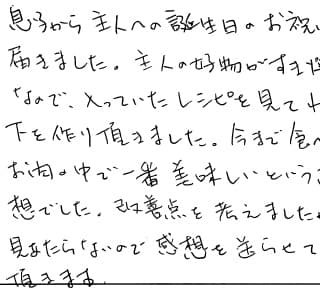 息子から主人への誕生日のお祝い
届きました。主人の好物がすき焼
なので、入っていたレシピを見てわ
下を作り頂きました。今まで食べ
お肉の中で一番美味しいという
想でした。改善点を考えました
見あたらないので感想を送らせて
頂きます